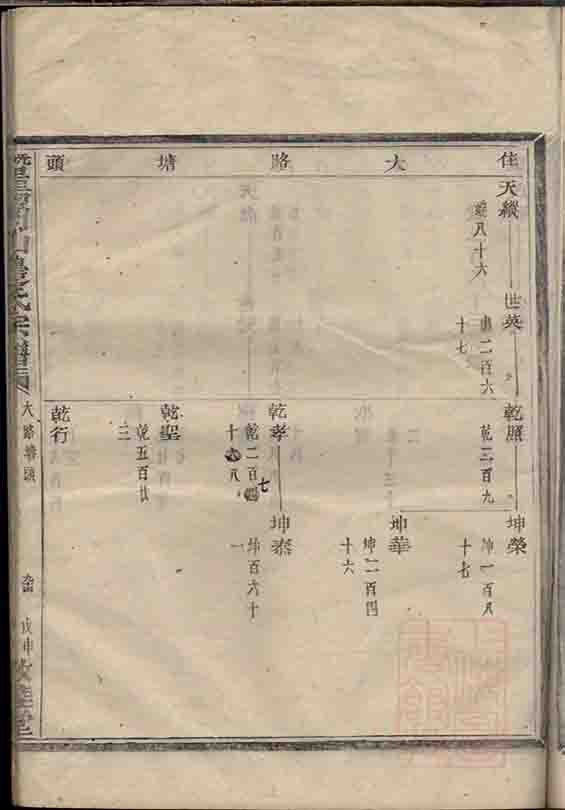 住大路塘頭
天縱
八十六
世英
二百六
十七
乾照
乾二百九
坤榮
坤一百八
十七
坤華
坤二百四
十六
乾孝
乾二百
七
十八
坤泰
坤百六十
一
乾聖
乾五百廿
三
乾行
山
氏宗譜
大路塘頭
戊申